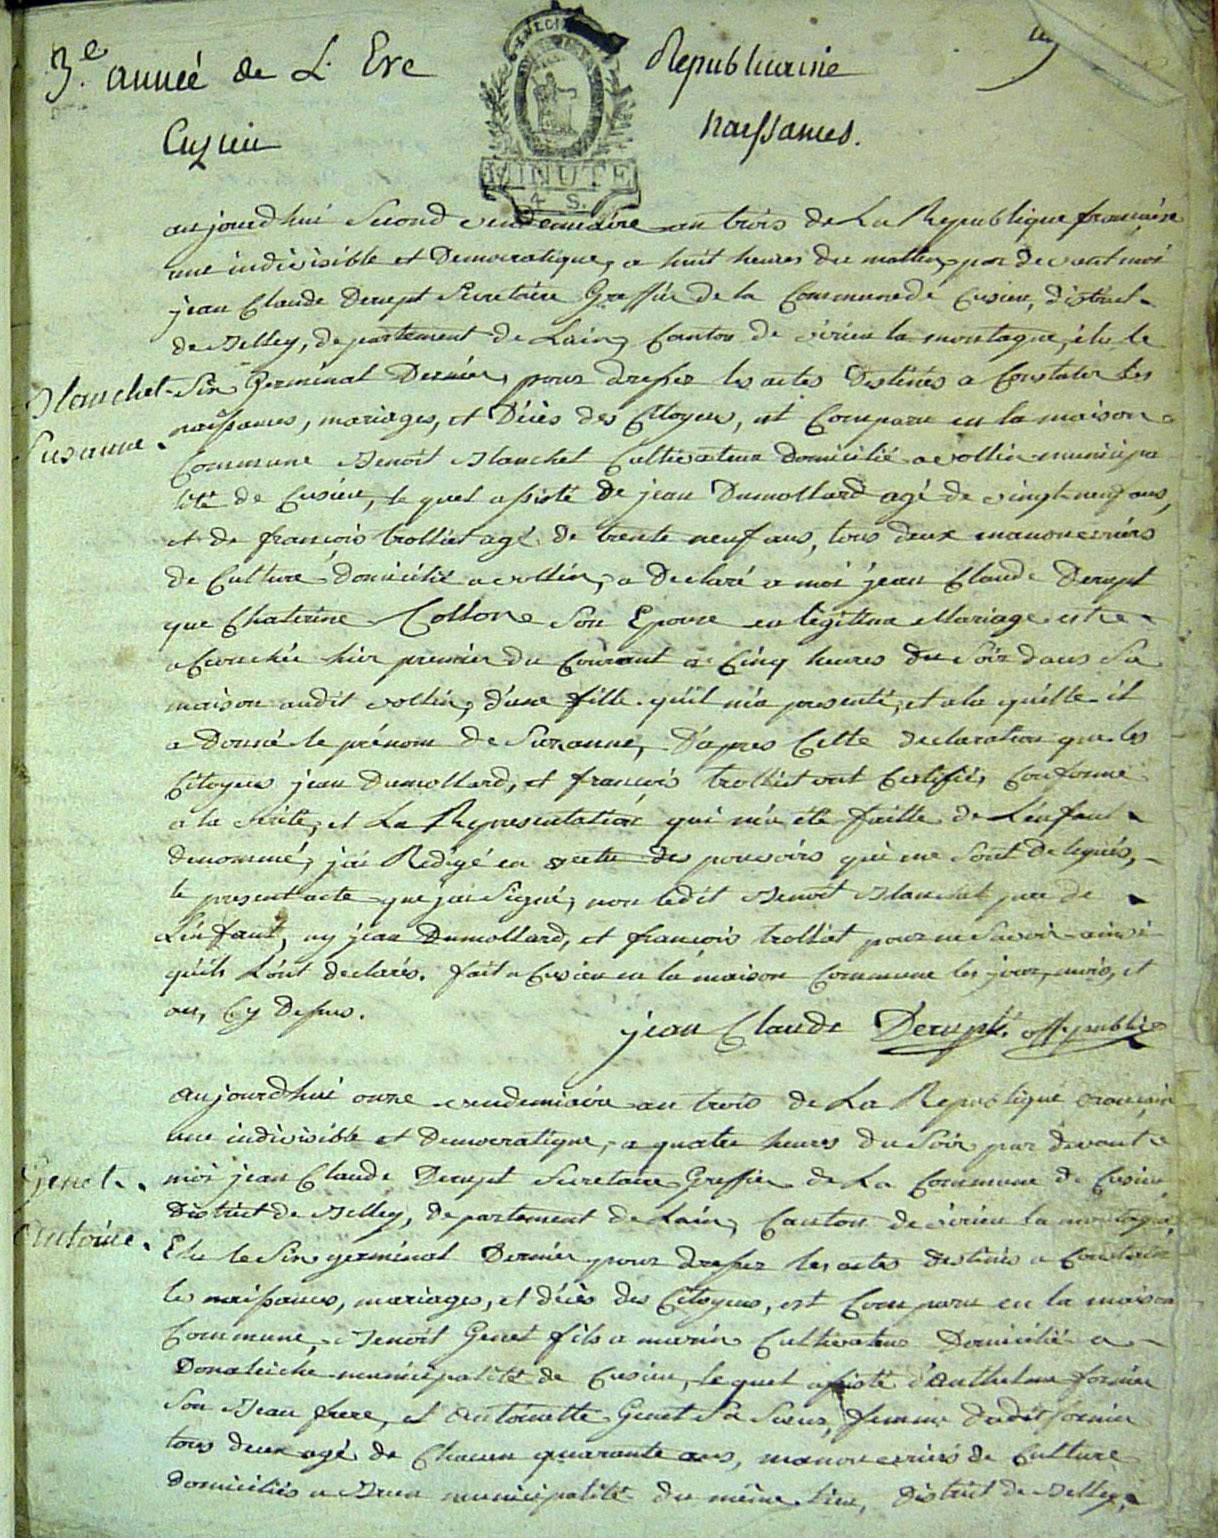 3.e année de L. Ere Republicaine
Cuzieu naissances.
MINUTE
4 S.
aujourdhui second vendemiaire an trois de La Republique francaise
une indivisible et Democratique, a huit heures du mattin, par devant moi
jean Claude Derupt Secretaire Greffier de la Commune de Cusieu, district
de Belley, departement de Lain, Canton de virieu la montagne, élu le
Blanchet Six Germinal Dernier, pour dresser les actes Destinés a Constater les
Susanne. naissances, mariages, et Décès des Citoyens, est Comparu en la maison
Commune Benoit Blanchet Cultivateur domicilié a vollin municipa
lité de Cusieu, le quel assisté de jean Dumollard agé de vingt neuf ans,
et de francois trolliet agé de trente neuf ans, tous deux manouvriers
de Culture domicilié a vollin, a declaré a moi jean Claude Derupt
que Chaterine Collon Son Epouse en legitime Mariage est
accouchée hier premier du Courant a Cinq heures du Soir dans Sa
maison audit vollin, d'une fille quil m'a presenté, et a la quelle il
a Donné le prénom de Suzanne, D'apres Cette declaration que les
Citoyens jean Dumollard, et francois trolliet ont Certifiés Conforme
a la vérité, et La Representation qui m'a été faitte de Lenfant
denommé, jai Redigé en vertu des pouvoirs qui me Sont delegués,
le present acte que jai Signé, non ledit Benoit Blanchet pere de
L'enfant, ny jean Dumollard, et francois trolliet pour ne Savoir ainsi
quils L'ont declarés. fait a Cusieu en la maison Commune les jour, mois, et
an, Cy Dessus.
jean Claude Derupt. off. public
aujourdhui onze vendemiaire an trois de La Republique francaise
une indivisible et democratique, a quatre heures du Soir par devant
Genet moi jean Claude Derupt Secretaire Greffier de La Commune de Cusieu
District de Belley, departement de Lain, Canton de virieu la montagne,
Antoine. Elu le Six germinal Dernier pour dresser les actes destinés a Constater
les naissances, mariages, et décès des Citoyens, est Comparu en la maison
Commune, Benoit Genet fils a marin Cultivateur Domicilié a
municipalité de Cusieu, le quel assisté d'Anthelme fornier
Son Beau frere, et Antoinette Genet Sa Soeur, femme dudit fornier
tous deux agé de Chacun quarante ans, manouvriers de Culture
domiciliés a Bren municipalité du même lieu, District de Belley,